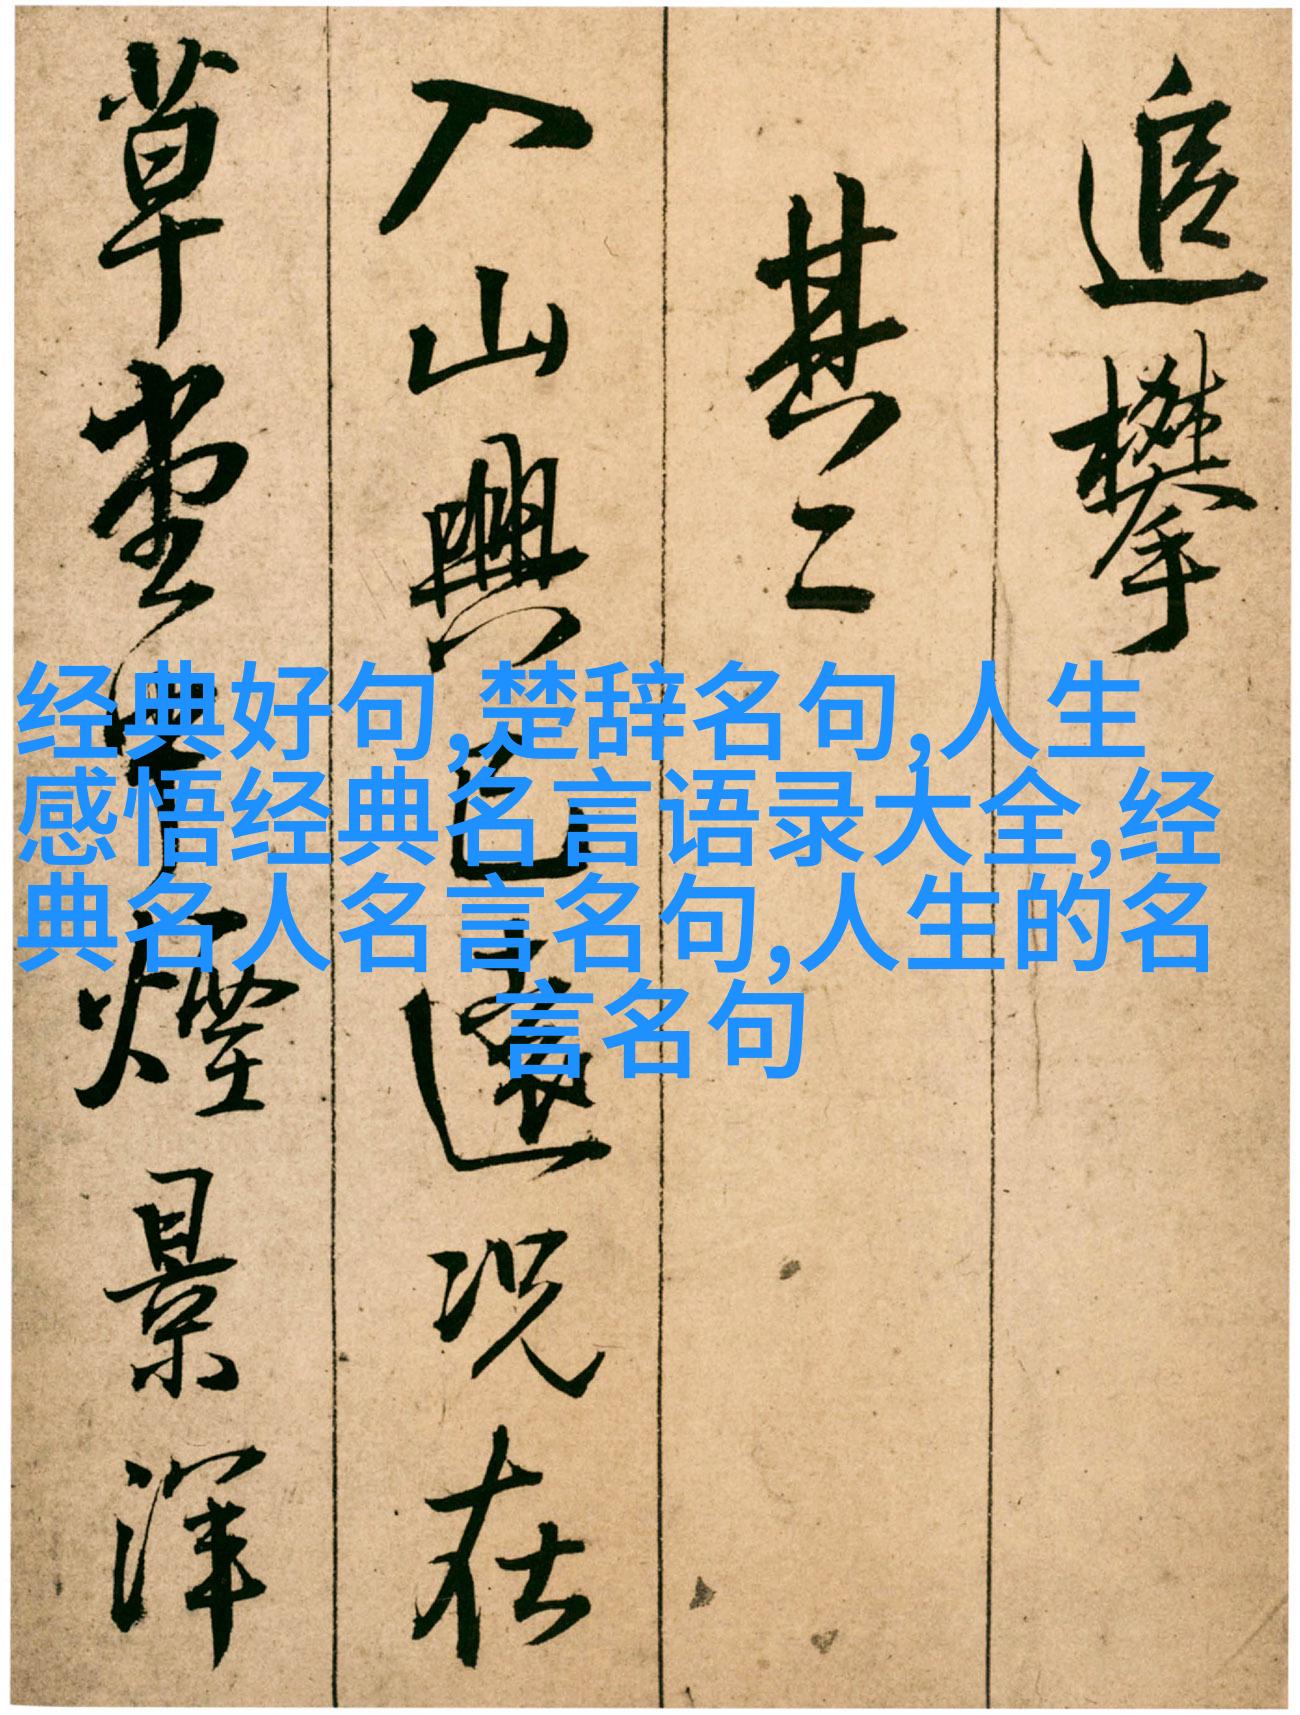 追攀
其二
入山興已遠况在
草堂中煙景渾
经典好句,楚辞名句,人生
感悟经典名言语录大全,经
典名人名言名句,人生的名
言名句